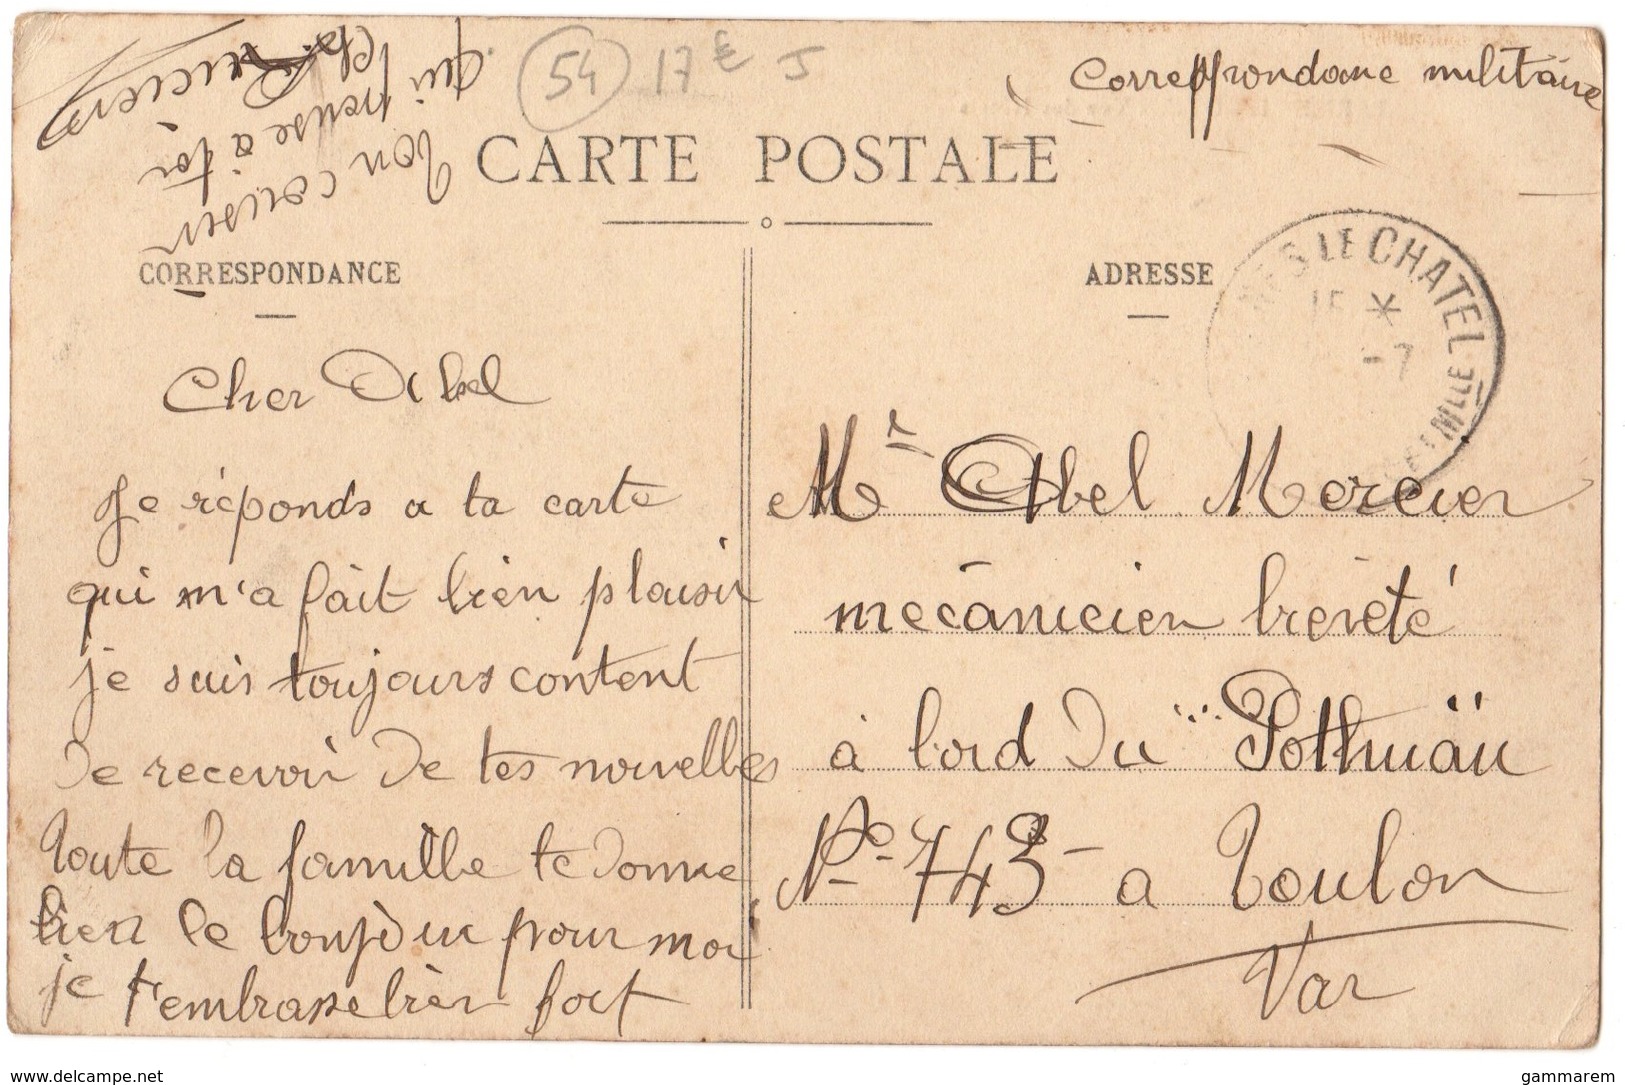 54 17e J
Correspondance militaire
CARTE POSTALE
CORRESPONDANCE
ADRESSE
MES LE CHATEL
15 *
-7
Mlle
Cher Abel
Je réponds a ta carte
qui m'a fait bien plaisir
je suis toujours content
de recevoir de tes nouvelles
Toute la famille te donne
bien le bonjour pour moi
je t'embrasse bien fort
Ton cousin
qui pense à toi
Mr Abel Mercier
mécanicien breveté
à bord du "Pothuäu
No 743 - a Toulon
Var
www.delcampe.net
gammarem